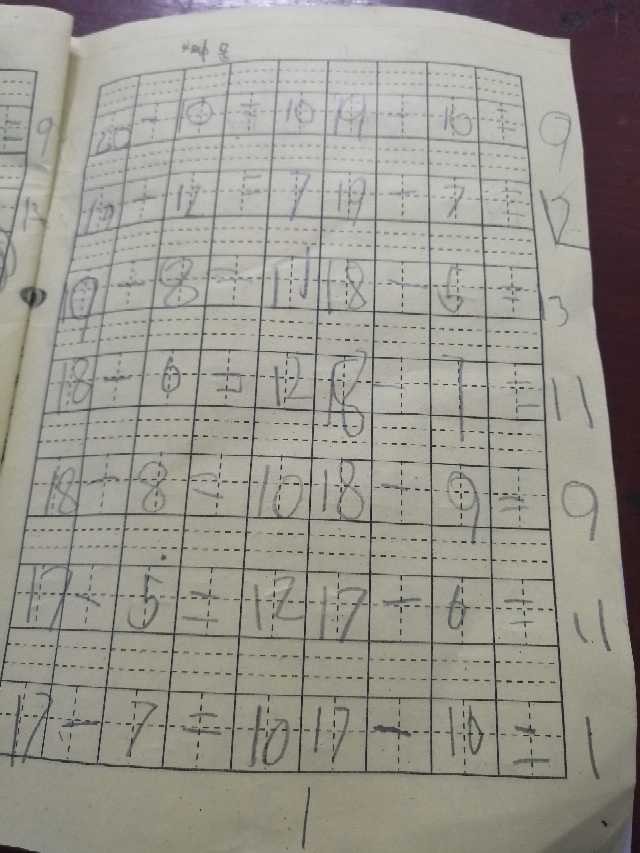 20 - 10 = 10 19 - 10 = 9
19 - 12 = 7 19 - 7 = 12
19 - 8 = 11 18 - 6 = 13
18 - 6 = 12 18 - 7 = 11
18 - 8 = 10 18 - 9 = 9
17 - 5 = 12 17 - 6 = 11
17 - 7 = 10 17 - 10 = 1
1